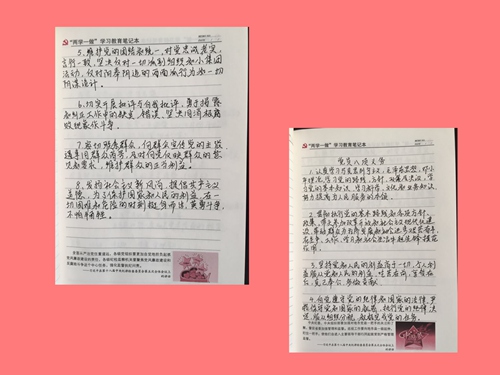 "两学一做"学习教育笔记本
5、维护党的团结和统一，对党忠诚老实，
言行一致，坚决反对一切派别组织和小集团
活动，反对阳奉阴违的两面派行为和一切
阴谋诡计。
6、切实开展批评与自我批评，勇于揭露
和纠正工作中的缺点、错误，坚决同消极腐
败现象作斗争。
7、密切联系群众，向群众宣传党的主张，
遇事同群众商量，及时向党反映群众的意
见和要求，维护群众的正当利益。
8、发扬社会主义新风尚，提倡共产主义
道德，为了保护国家和人民的利益，在一
切困难和危险的时刻挺身而出，英勇斗争，
不怕牺牲。
"两学一做"学习教育笔记本
党员八项义务
1、认真学习马克思列宁主义、毛泽东思想、邓小
平理论，学习党的路线、方针、政策及决议，学
习党的基本知识，学习科学、文化和业务知识，
努力提高为人民服务的本领。
2、贯彻执行党的基本路线和各项方针、
政策，带头参加改革开放和社会主义现代化建
设，带动群众为经济发展和社会进步艰苦奋斗，
在生产、工作、学习和社会生活中起先锋模范
作用。
3、坚持党和人民的利益高于一切，个人利
益服从党和人民的利益，吃苦在前，享受在
后，克己奉公，多做贡献。
4、自觉遵守党的纪律和国家的法律，严
格保守党和国家的秘密，执行党的决定，
服从组织分配，积极完成党的任务。